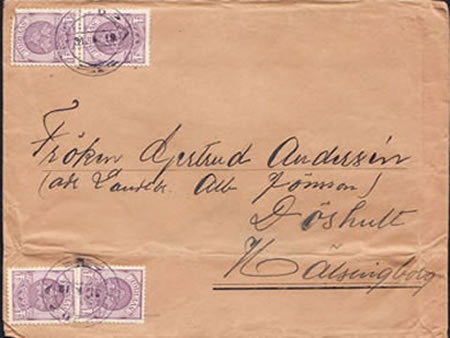 Fröken Gertrud Andersén
(adr Landtb. Alb Jönsson)
Döshult
Hälsingborg